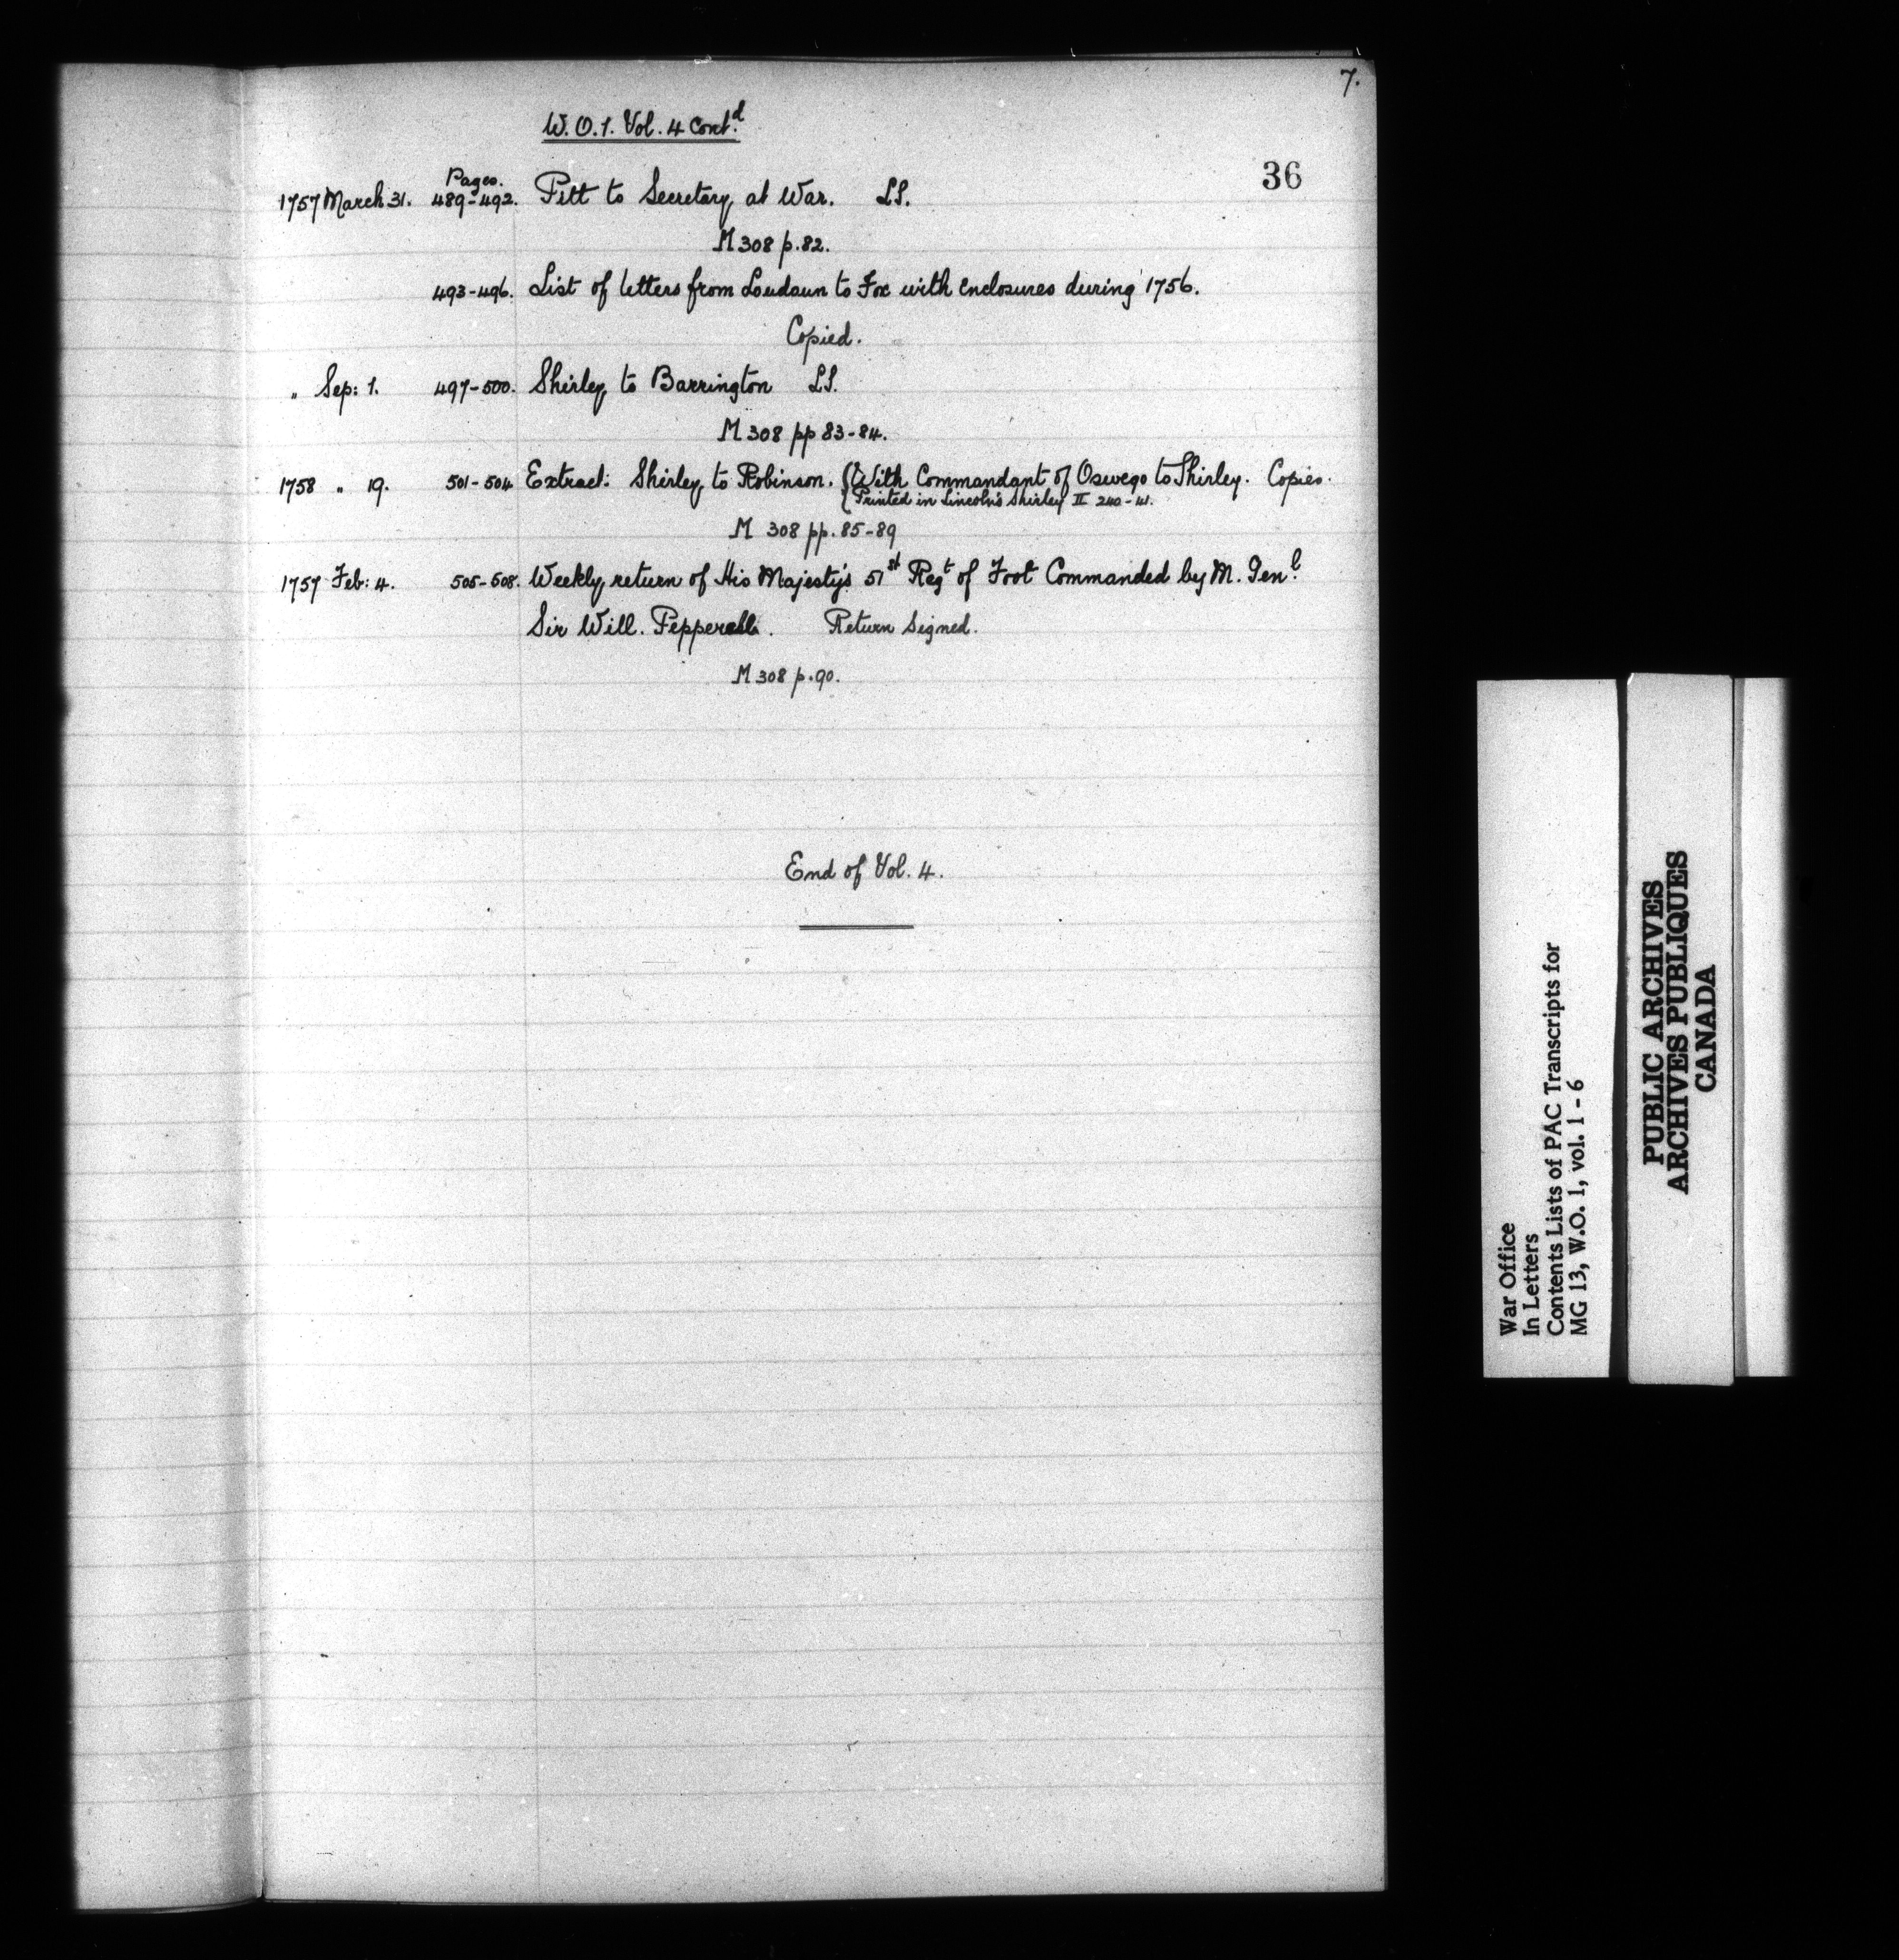 7.
W. O. 1. Vol. 4 Cont.d
36
Pages.
1757 March 31. 489-492. Pitt to Secretary at War. LS.
M 308 p. 82.
493-496. List of letters from Loudoun to Fox with enclosures during 1756.
Copied.
" Sep: 1. 497-500. Shirley to Barrington LS.
M 308 pp 83-84.
1758 " 19. 501-504 Extract: Shirley to Robinson. (With Commandant of Oswego to Shirley. Copies.
(Printed in Lincoln's Shirley II 240-41.
M 308 pp. 85-89
1757 Feb: 4. 505-508. Weekly return of His Majesty's 51st Regt of Foot Commanded by M. Genl.
Sir Will. Pepperell. Return Signed.
M 308 p. 90.
End of Vol. 4.
War Office
In Letters
Contents Lists of PAC Transcripts for
MG 13, W.O. 1, vol. 1 - 6
PUBLIC ARCHIVES
ARCHIVES PUBLIQUES
CANADA